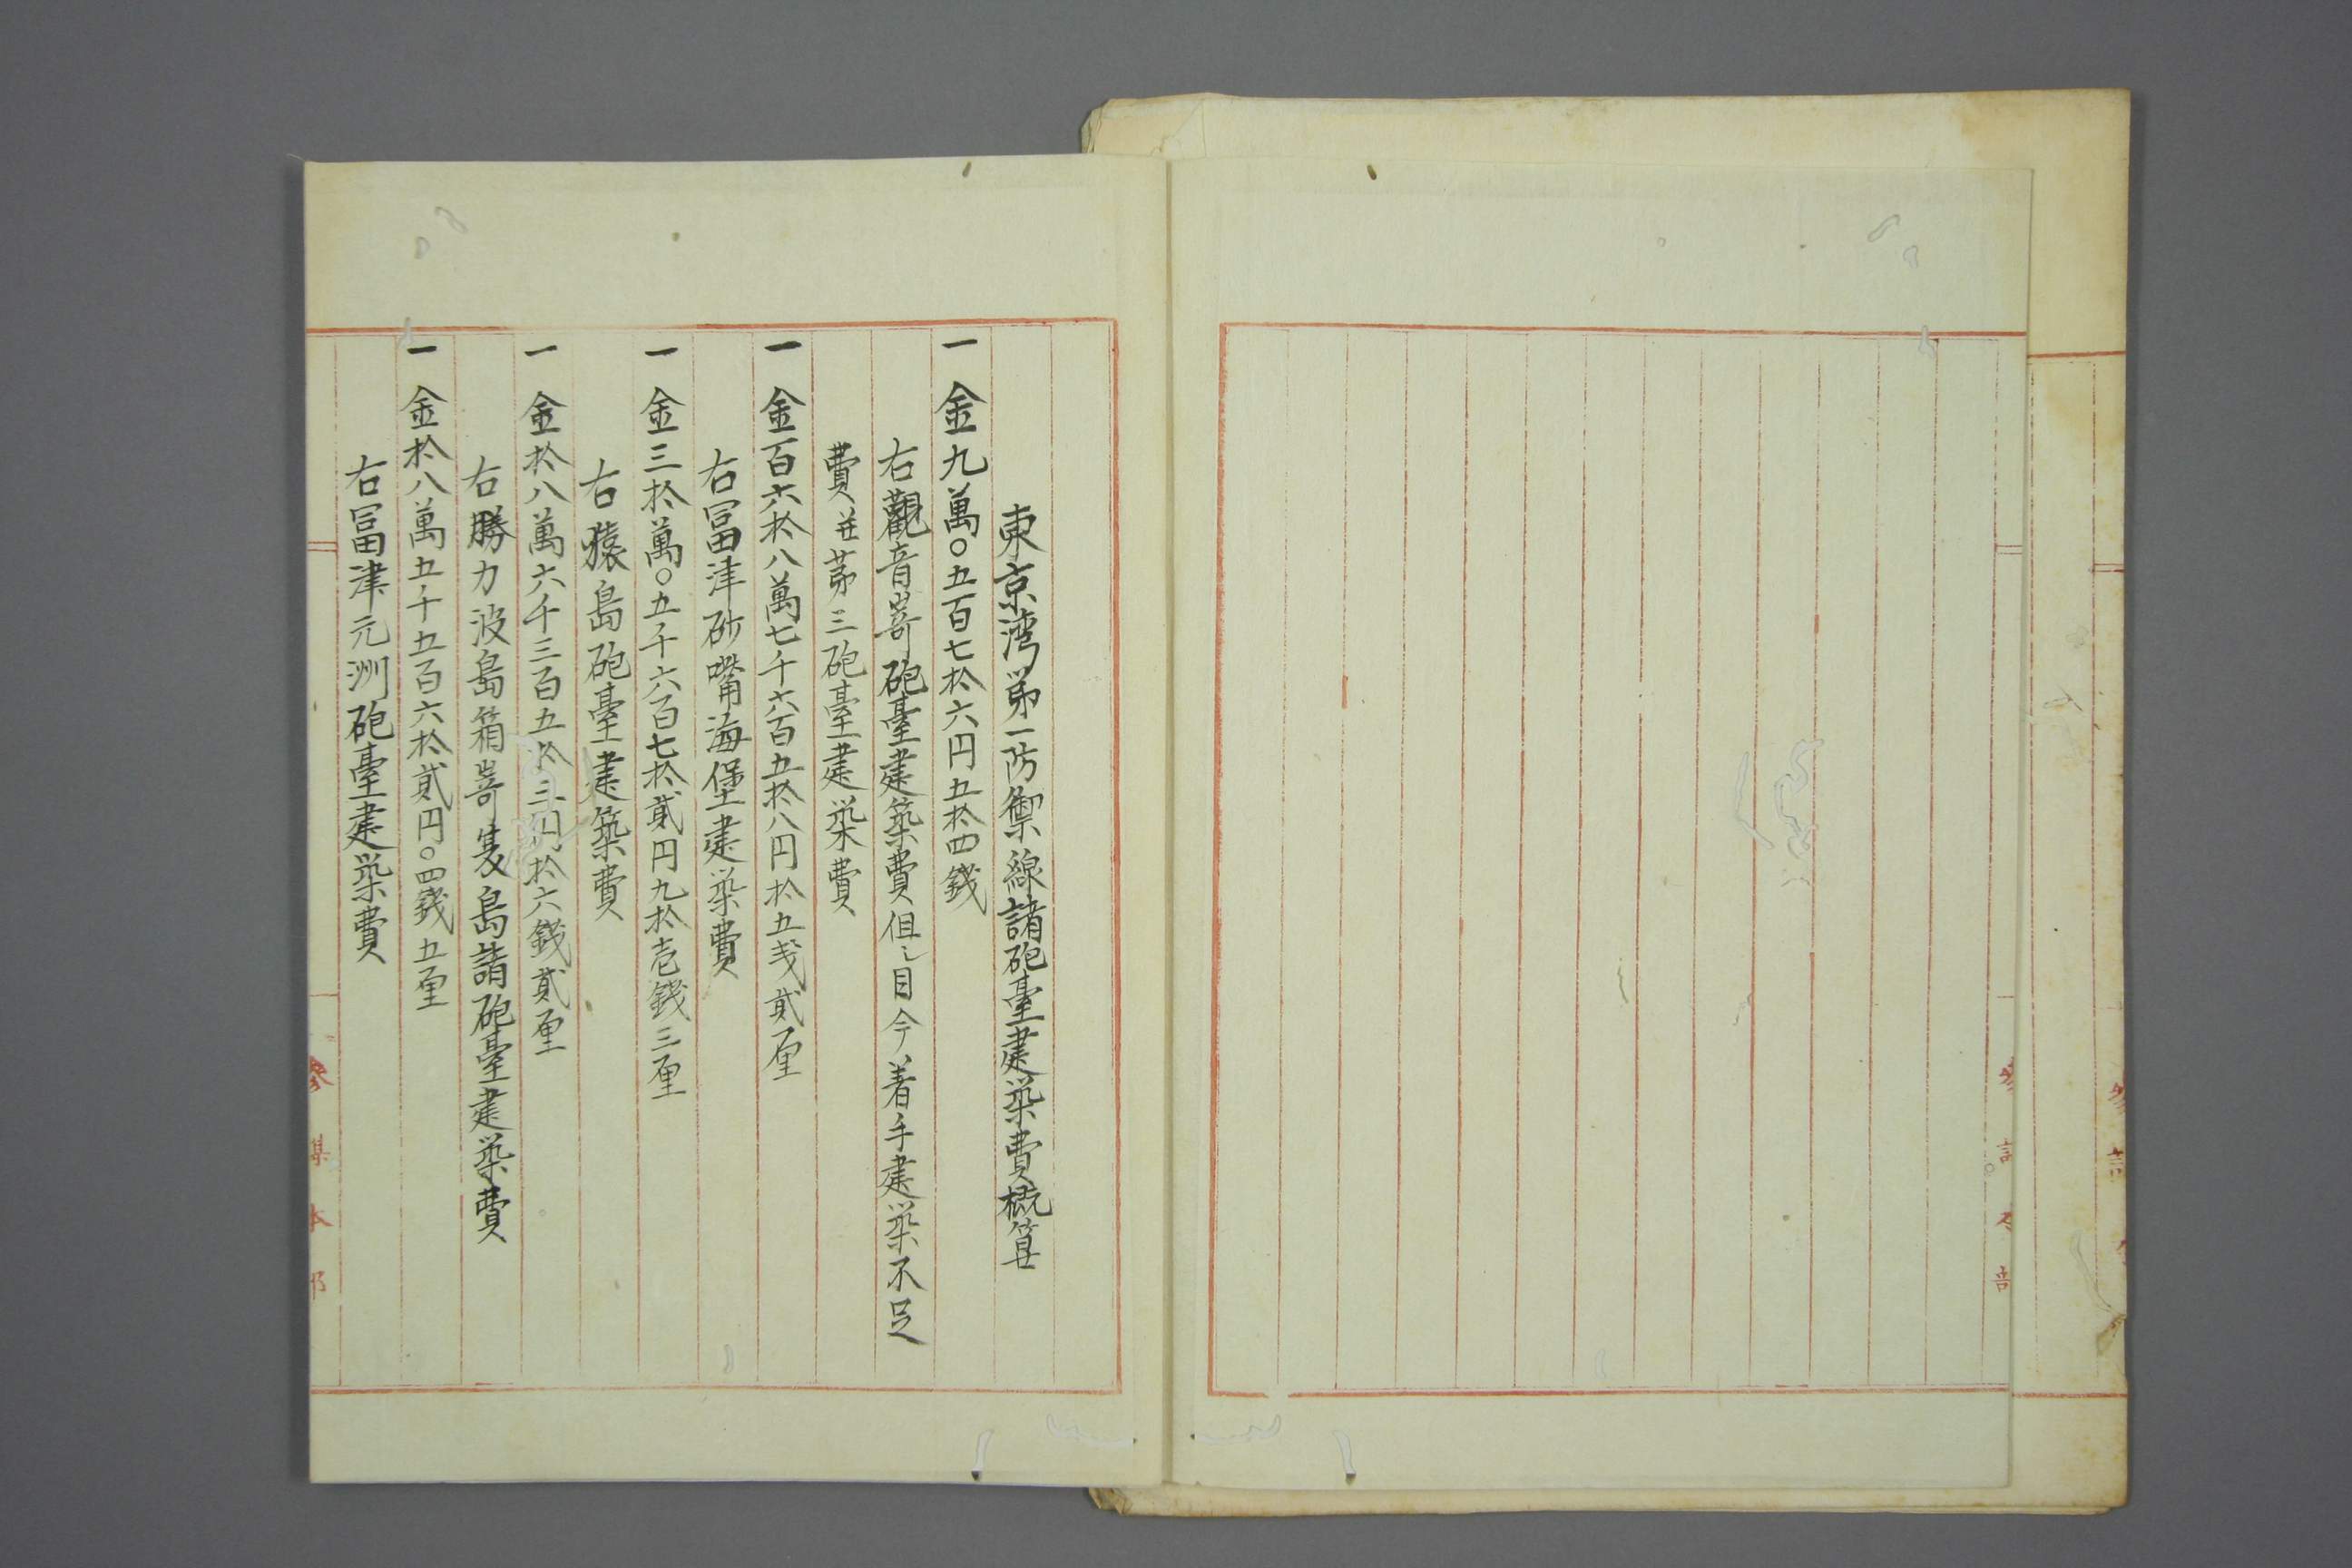 東京湾第一防禦線諸砲臺建築費概算
一 金九萬〇五百七拾六円五拾四錢
右觀音嵜砲臺建築費但シ目今着手建築不足
費并第三砲臺建築費
一 金百六拾八萬七千六百五拾八円拾五戋貳厘
右冨津砂嘴海堡建築費
一 金三拾萬〇五千六百七拾貳円九拾壱錢三厘
右猿島砲臺建築費
一 金拾八萬六千三百五拾三円拾六錢貳厘
右勝力波島箱嵜夏島諸砲臺建築費
一 金拾八萬五千五百六拾貳円〇四錢五厘
右冨津元洲砲臺建築費
參謀本部